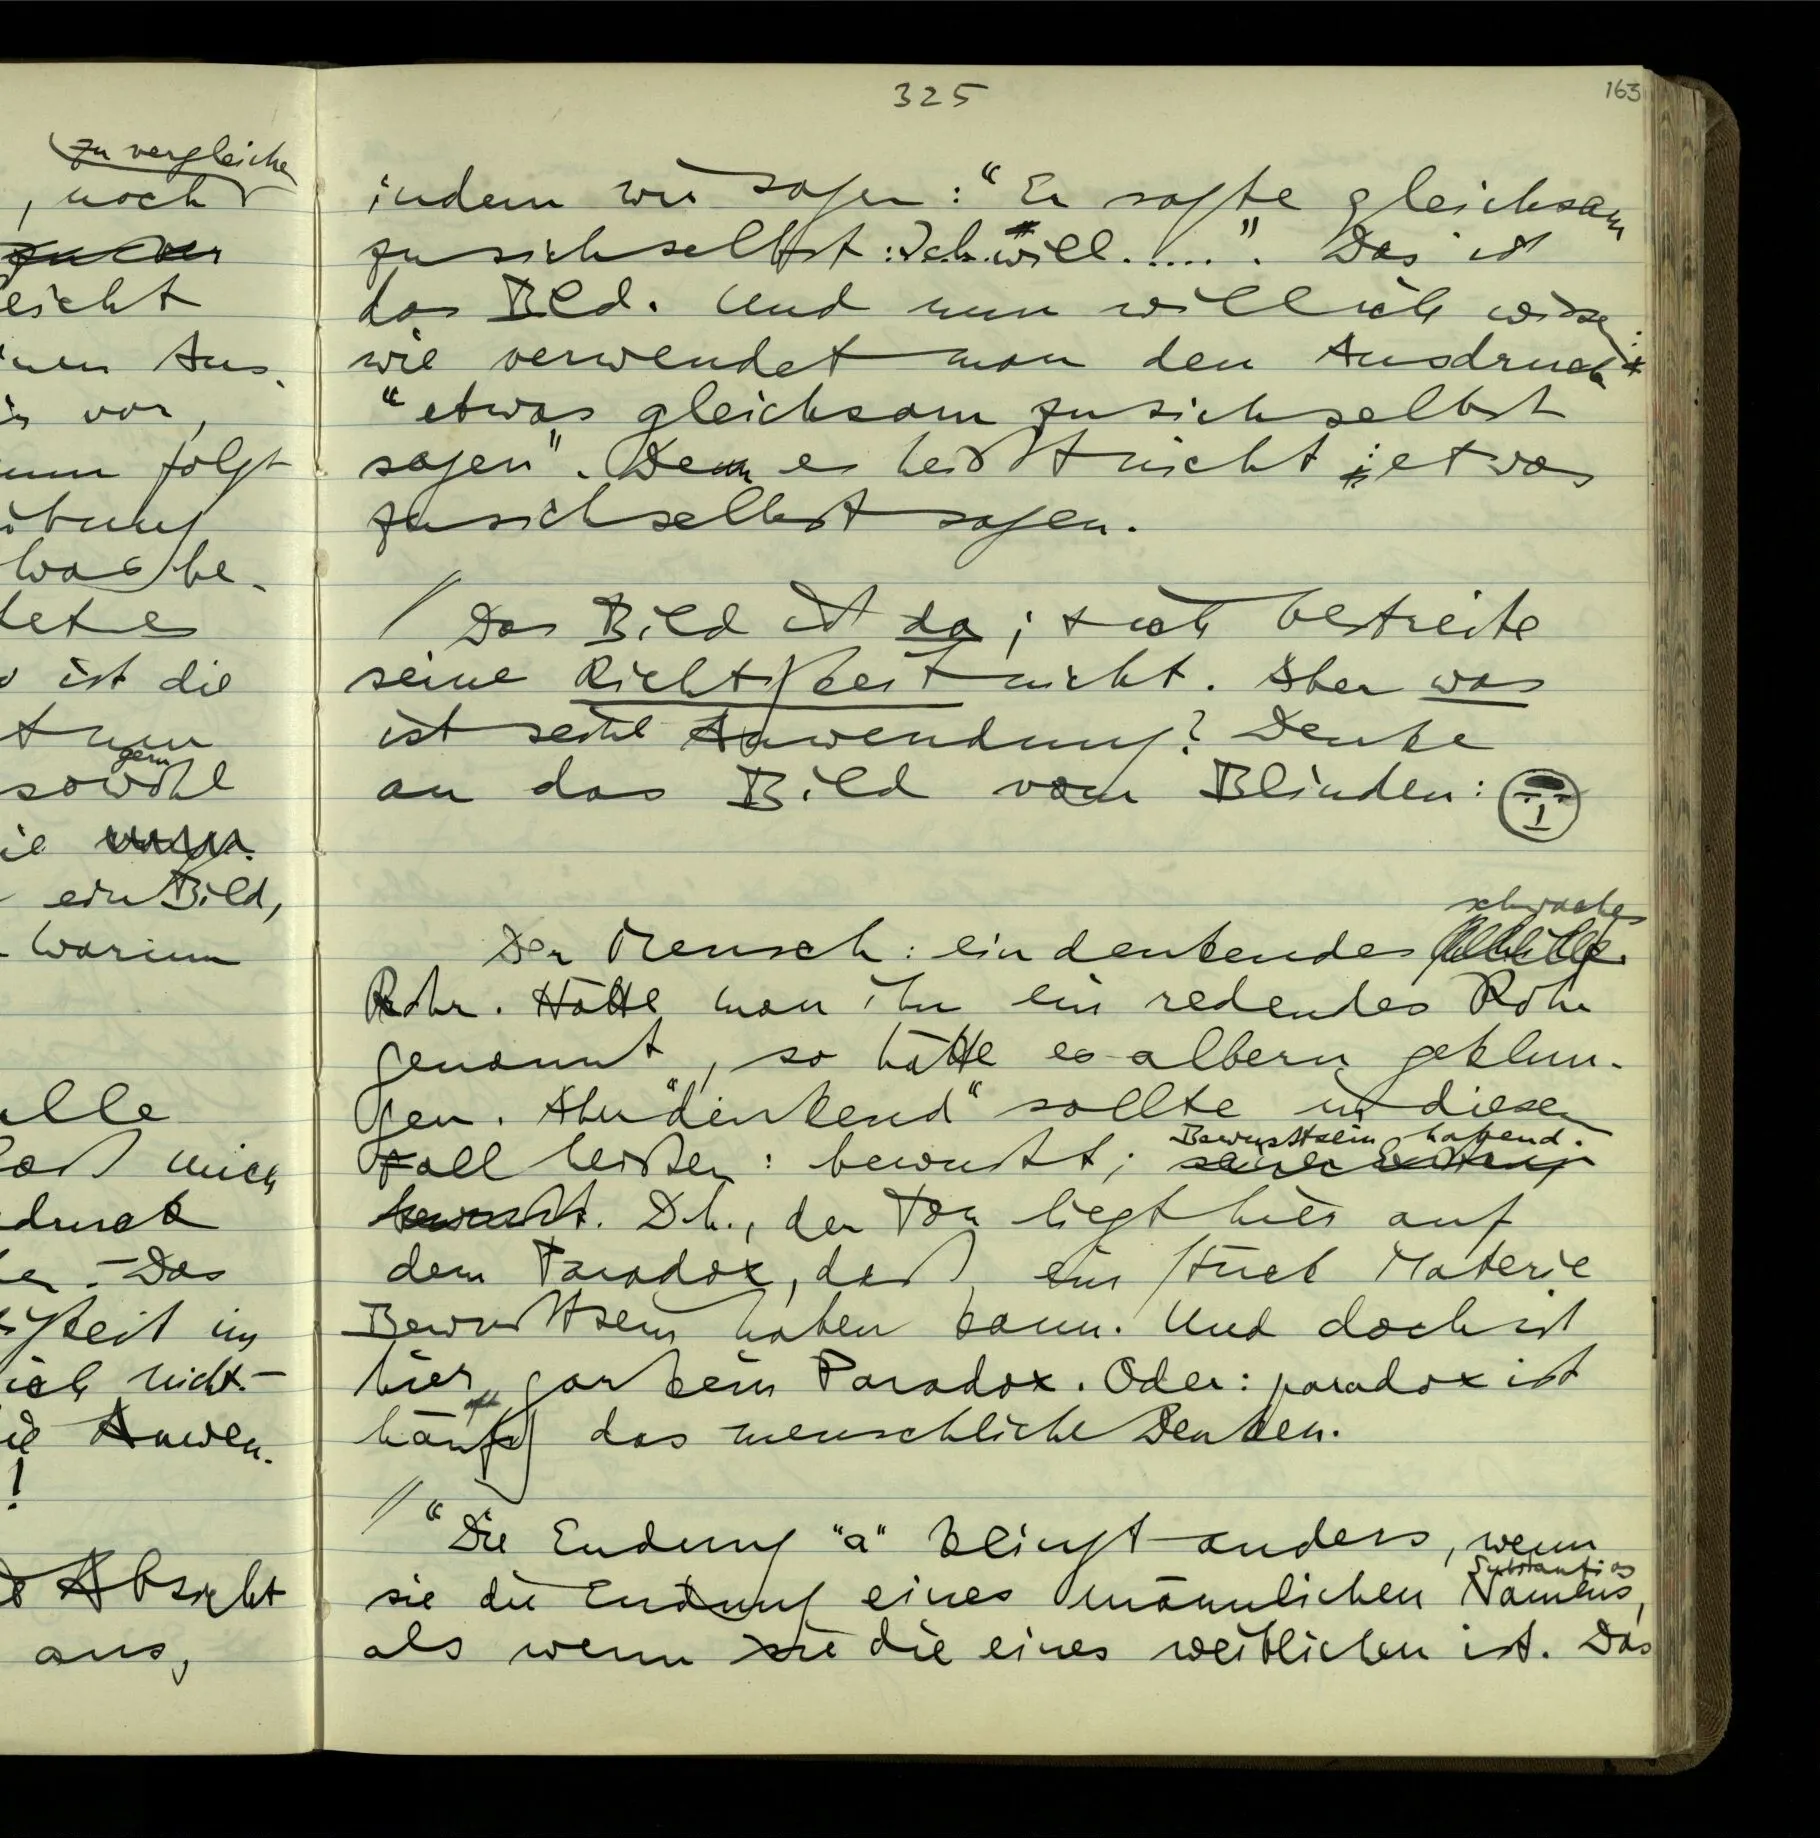 zu vergleichen
, noch
leicht
inen Aus-
vor,
nun folgt
was be-
ist die
nun
gern
sowohl
ein Bild,
Warum
alle
daß mich
druck
Das
ich nicht.–
Anwen-
!
Absicht
aus,
325
163
indem wir sagen: “Er sagte gleichsam
zu sich selbst: Ich will.....”. Das ist
das Bild. Und nun will ich wissen:
wie verwendet man den Ausdruck
“etwas gleichsam zu sich selbst
sagen”. Denn es heißt nicht: etwas
zu sich selbst sagen.
// Das Bild ist da; & ich bestreite
seine Richtigkeit nicht. Aber was
ist seine Anwendung? Denke
an das Bild vom Blinden:
schwaches
Der Mensch: ein denkendes
Rohr. Hätte man ihn ein redendes Rohr
genannt, so hätte es albern geklun-
gen. Aber “denkend” sollte in diesem
Bewußtsein habend.
Fall heißen: bewußt; seiner
bewußt. D.h., der Ton liegt hier auf
dem Paradox, daß ein Stück Materie
Bewußtsein haben kann. Und doch ist
hier gar kein Paradox. Oder: paradox ist
oft
häufig das menschliche Denken.
// “Die Endung “a” klingt anders, wenn
Substantivs
sie die Endung eines männlichen Namens,
als wenn sie die eines weiblichen ist. Das